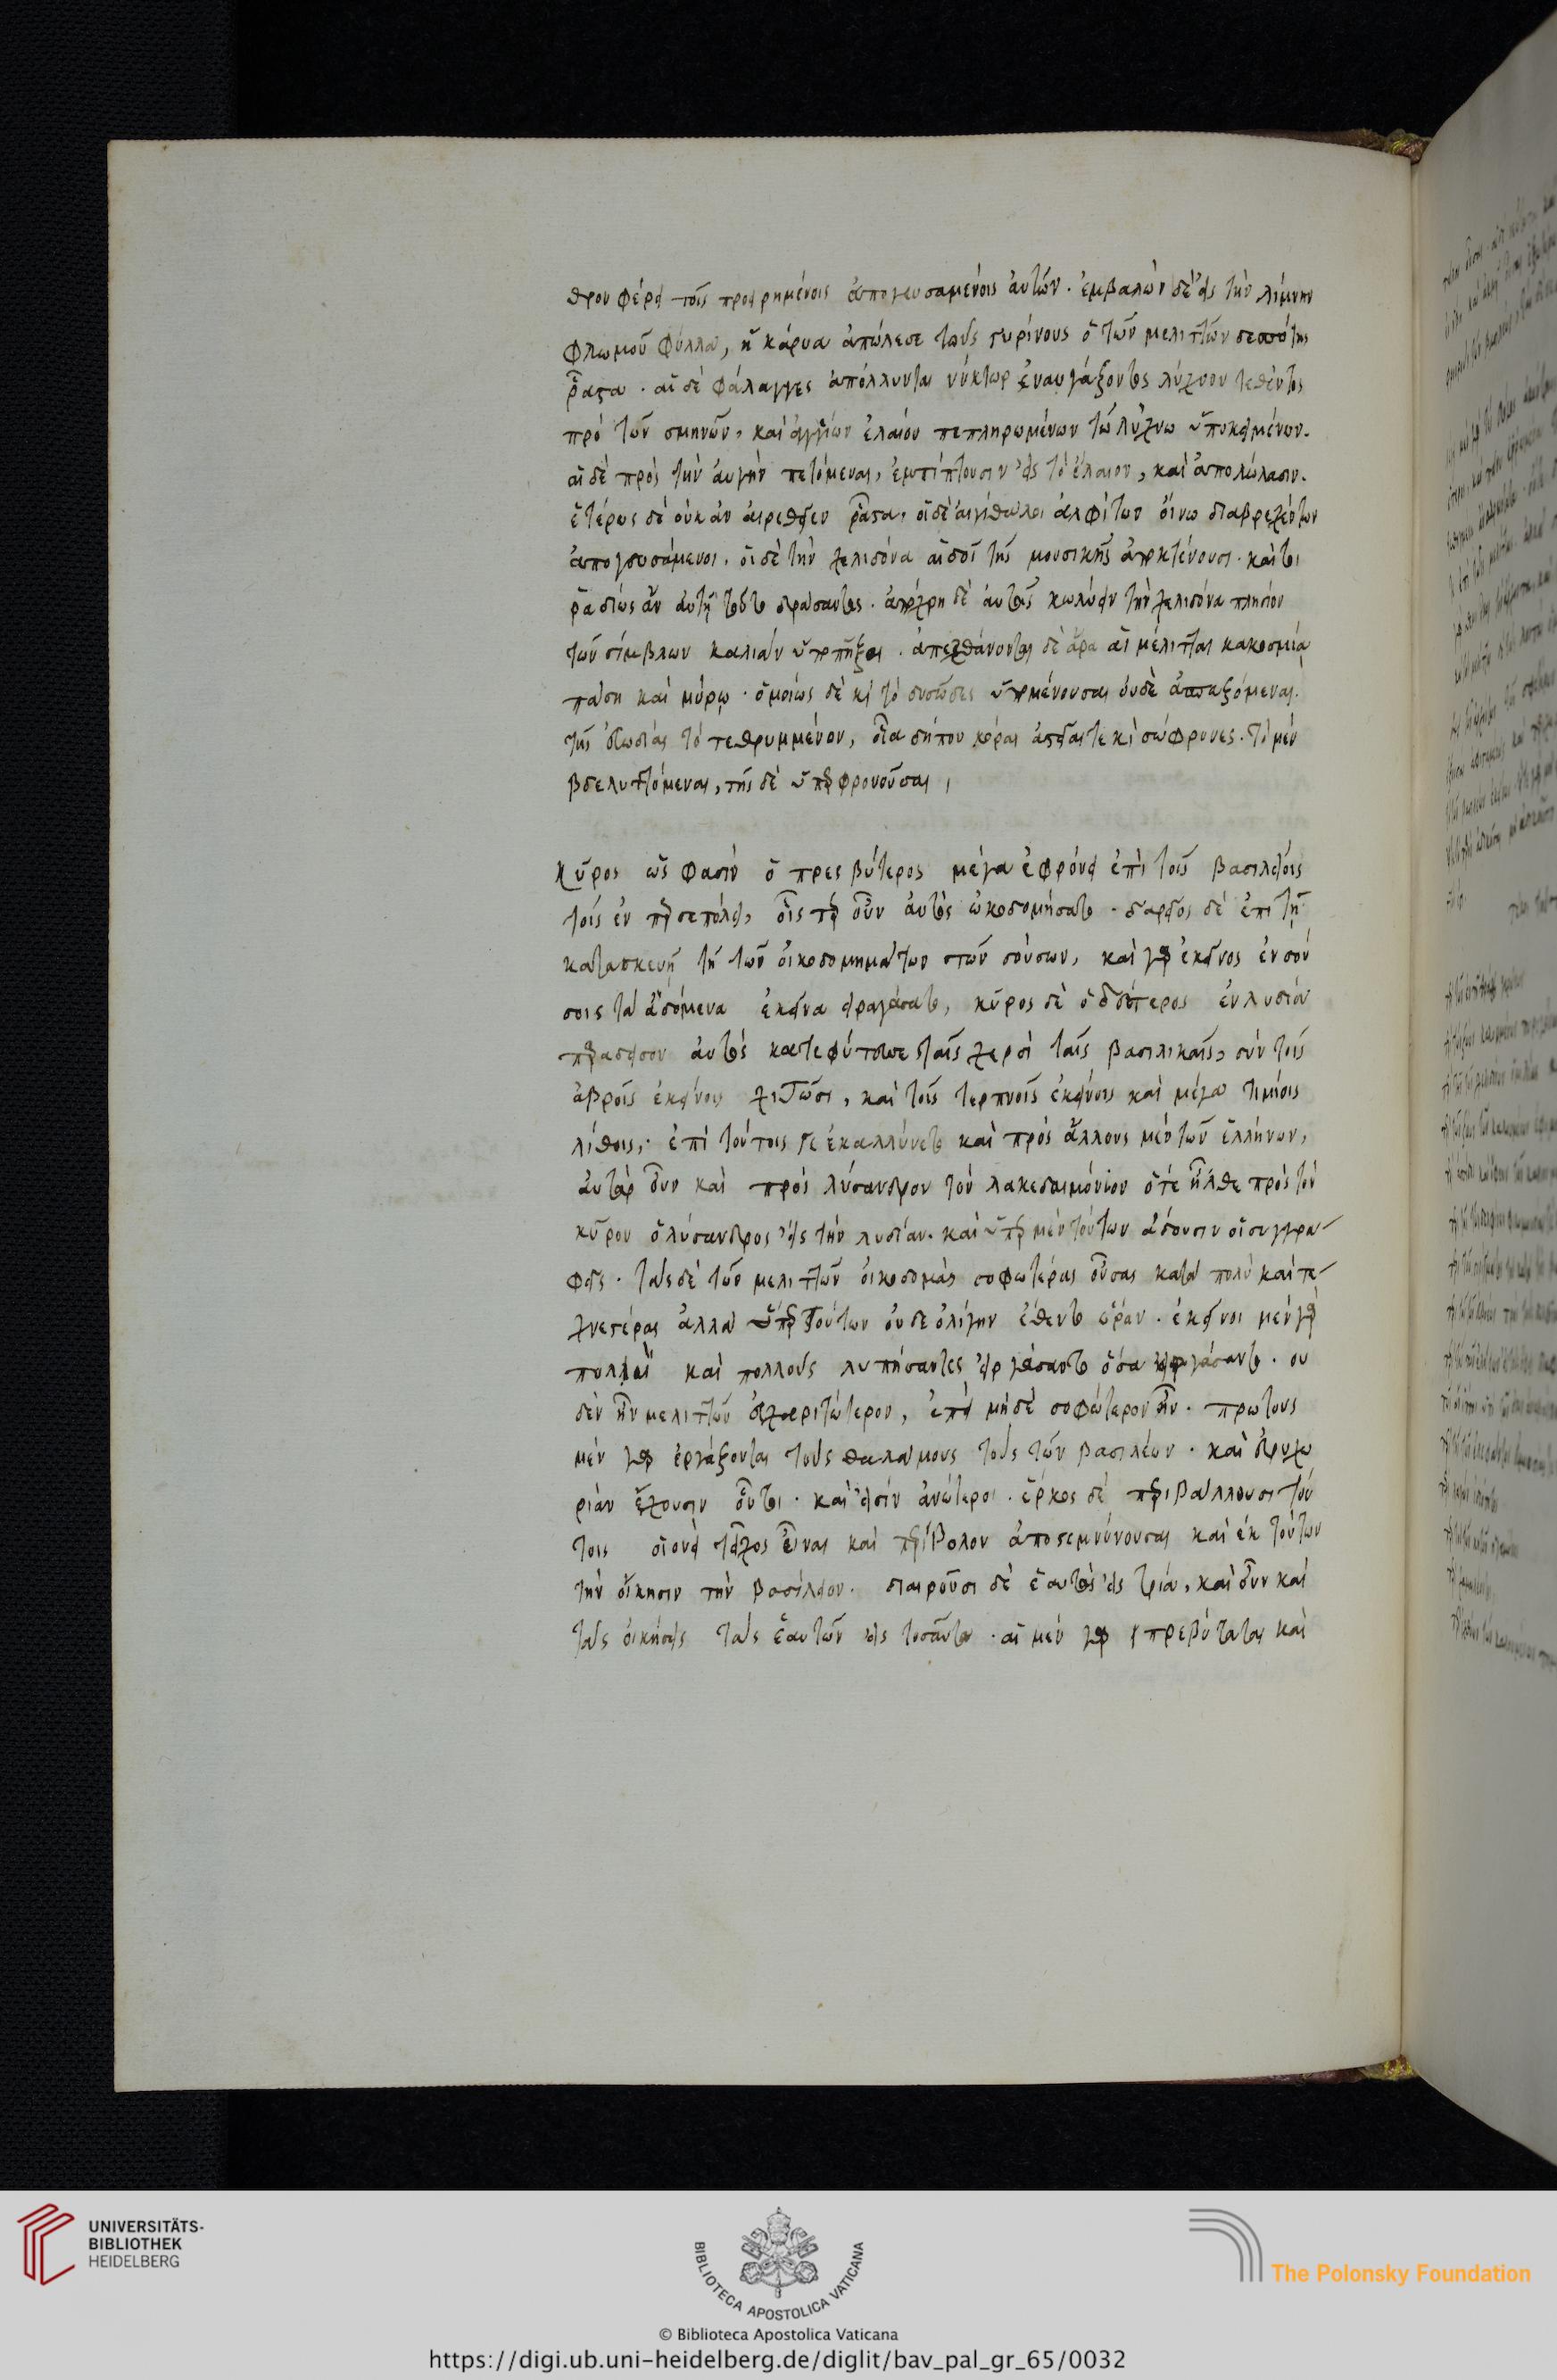 θρον φέρει τοῖς προειρημένοις ἀπογευσαμένοις αὐτῶν. ἐμβαλὼν δὲ εἰς τὴν λίμνην
φλωμοῦ φύλλα, ἢ κάρυα ἀπώλεσε τοὺς γυρίνους ὁ τῶν μελιττῶν δεσπότης
ῥᾷστα. αἱ δὲ φάλαγγες ἀπόλλυνται νύκτωρ ἐναυγάζοντος λύχνου τεθέντος
πρὸ τῶν σμηνῶν, καὶ ἀγγείων ἐλαίου πεπληρωμένων τῶ λύχνω ὑποκειμένων.
αἱ δὲ πρὸς τὴν αὐγὴν πετόμεναι, ἐμπίπτουσιν εἰς τὸ ἔλαιον, καὶ ἀπολώλασιν.
ἑτέρως δὲ οὐκ ἂν αἱρεθεῖεν ῥᾷστα. οἱ δὲ αἰγίθαλοι ἀλφίτων οἴνω διαβρεχέντων
ἀπογευσάμενοι. οἱ δὲ τὴν χελιδόνα αἰδοῖ τῆς μουσικῆς οὐκ ἀποκτένουσι. καίτοι
ῥαδίως ἂν αὐτὴν τοῦτο δράσαντες. ἀπόχρη δὲ αὐτοῖς κωλύειν τὴν χελιδόνα πλησίον
τῶν σίμβλων καλιὰν ὑποπῆξαι. ἀπεχθάνονται δὲ ἄρα αἱ μέλιτται κακοσμία
πάση καὶ μύρῳ. ὁμοίως δὲ κὶ τὸ δυσῶδες ὑπομένουσαι οὐδὲ ἀσπαζόμεναι
τῆς εὐωδίας τὸ τεθρυμμένον, οἷα δήπου κόραι ἀστεῖαί τε κὶ σώφρονες. τὸ μὲν
βδελυττόμεναι, τῆς δὲ ὑπερφρονοῦσαι,
κῦρος ὥς φασιν ὁ πρεσβύτερος μέγα ἐφρόνει ἐπὶ τοῖς βασιλείοις
τοῖς ἐν περσεπόλει, οἷσπερ οὖν αὐτὸς ὠκοδομήσατο. δαρεῖος δὲ ἐπὶ τῆ
κατασκευῆ τῆ τῶν οἰκοδομημάτων τῶν σούσων, καὶ γὰρ ἐκεῖνος ἐν σού
σοις τὰ ἀδόμενα ἐκεῖνα εἰργάσατο, κῦρος δὲ ὁ δεύτερος ἐν λυδία
παράδεισον αὐτὸς κατεφύτευσε ταῖς χερσὶ ταῖς βασιλικαῖς, σὺν τοῖς
ἁβροῖς ἐκείνοις χιτῶσι, καὶ τοῖς τερπνοῖς ἐκείνοις καὶ μέγα τιμίοις
λίθοις, ἐπὶ τούτοις γε ἐκαλλύνετο καὶ πρὸς ἄλλους μὲν τῶν ἑλλήνων,
ἀυτὰρ οὖν καὶ πρὸς λύσανδρον τὸν λακεδαιμόνιον ὅτε ἦλθε πρὸς τὸν
κῦρον ὁ λύσανδρος εἰς τὴν λυδίαν. καὶ ὑπὲρ μὲν τούτων ἄδουσιν οἱ συγγρα-
φεῖς. τὰς δὲ τῶν μελιττῶν οἰκοδομὰς σοφωτέρας οὔσας κατὰ πολὺ καὶ τε-
χνετέρας ἀλλὰ ὑπὲρ τούτων οὐδὲ ὀλίγην ἔθεντο ὥραν. ἐκεῖνοι μὲν γὰρ
πολλοὶ καὶ πολλοὺς λυπήσαντες εἰργάσαντο ὅσα εἰργάσαντο. οὐ
δὲν ἦν μελιττῶν εὐχαριτώτερον, ἐπεὶ μηδὲ σοφώτερον ἦν. πρώτους
μὲν γὰρ ἐργάζονται τοὺς θαλάμους τοὺς τῶν βασιλέων. καὶ εὐρυχω
ρίαν ἔχουσιν οὗτοι. καὶ εἰσὶν ἀνώτεροι. ἕρκος δὲ περιβάλλουσι τού
τοις οἱονεὶ τεῖχος εἶναι καὶ περίβολον ἀποσεμνύνουσαι καὶ ἐκ τούτων
τὴν οἴκησιν τὴν βασίλειον. διαιροῦσι δὲ ἑαυτὰς εἰς τρία, καὶ οὖν καὶ
τὰς οἰκήσεις τὰς ἑαυτῶν εἰς τοσαῦτα. αἱ μὲν γὰρ πρεβύταται καὶ
UNIVERSITÄTS-
BIBLIOTHEK
HEIDELBERG
BIBLIOTECA APOSTOLICA VATICANA
The Polonsky Foundation
© Biblioteca Apostolica Vaticana
https://digi.ub.uni-heidelberg.de/diglit/bav_pal_gr_65/0032